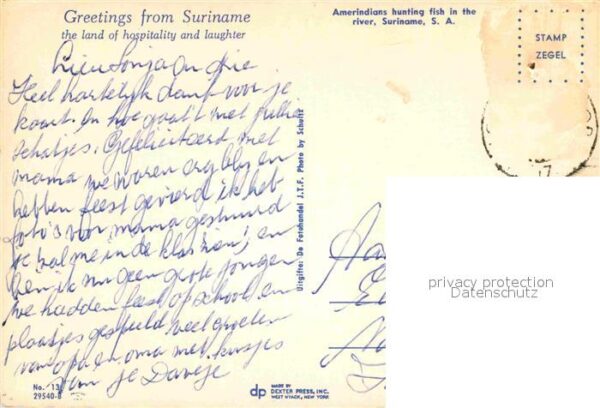 Greetings from Suriname
the land of hospitality and laughter
Amerindians hunting fish in the
river, Suriname, S. A.
STAMP
ZEGEL
Lieve Sonja en
Heel hartelijk dank voor je
kaart. En hoe gaat met jullie
schatjes. Gefeliciteerd met
mama we waren erg blij en
hebben feest gevierd ik heb
foto's voor mama gestuurd
je zal me in de klas zien, en
ben ik nu geen grote jongen
we hadden feest op school en
plaatjes gespeeld veel groeten
van opa en oma met kusjes
van je
Uitgifte: De Fotohandel J.T.F. Photo by Schultz
17
privacy protection
Datenschutz
No. 13
29540-B
dp
MADE BY
DEXTER PRESS, INC.
WEST NYACK, NEW YORK